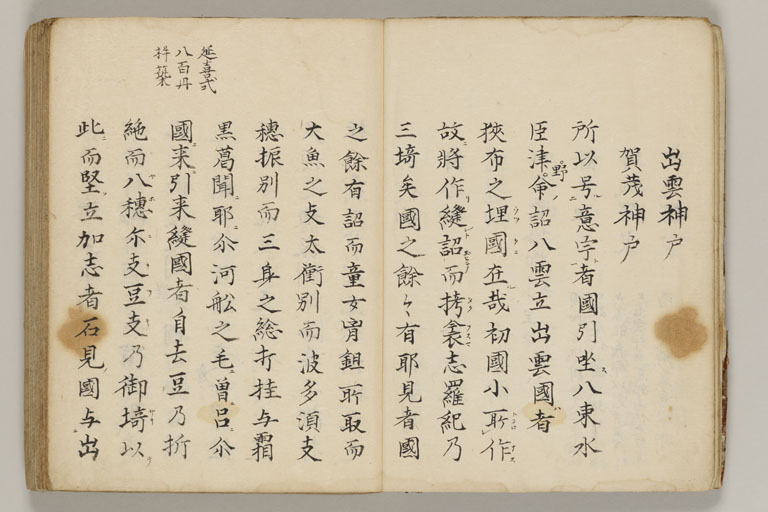 出雲神戸
賀茂神戸
所以号意宇者國引坐八束水
臣津野命詔八雲立出雲國者
狹布之堙國在哉初國小所作
故將作縫詔而栲衾志羅紀乃
三埼矣國之餘々有耶見者國
之餘有詔而童女胷鉏所取而
大魚之支太衝別而波多湏支
穗振別而三身之総打挂与霜
黒葛聞耶尒河舩之毛曽呂尒
國来引来縫國者自去豆乃折
絶而八穗尒支豆支乃御埼以
此而堅立加志者石見國与出
延喜式
八百丹
杵築